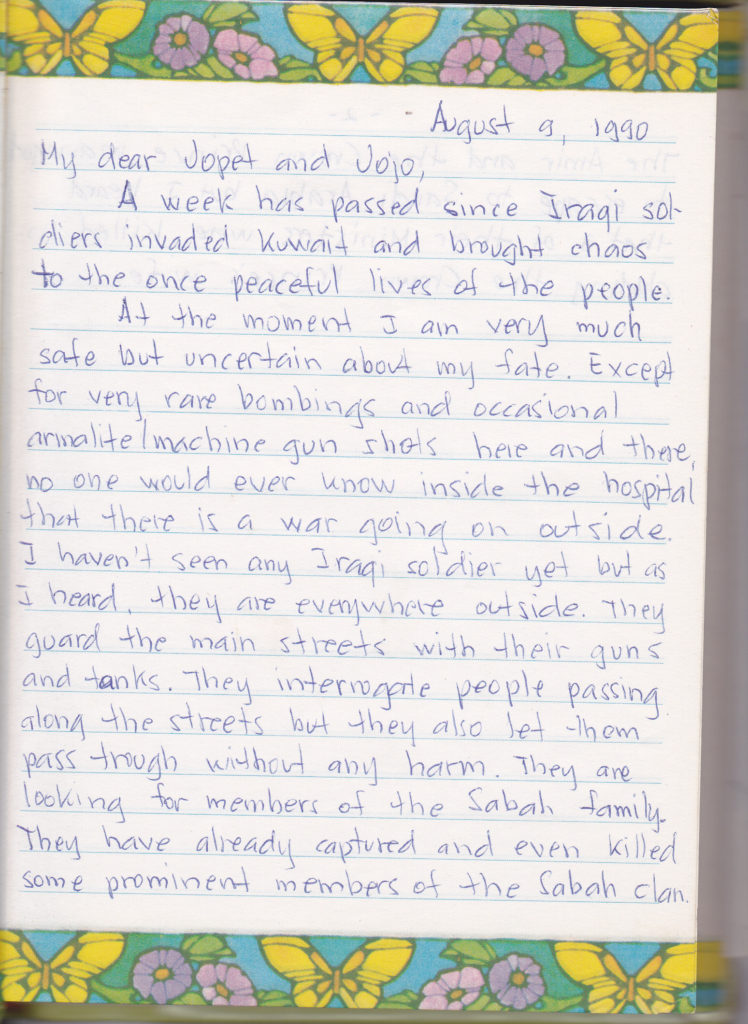 August 9, 1990
My dear Jopet and Jojo,
A week has passed since Iraqi sol-
diers invaded Kuwait and brought chaos
to the once peaceful lives of the people.
At the moment I am very much
safe but uncertain about my fate. Except
for very rare bombings and occasional
armalite/machine gun shots here and there,
no one would ever know inside the hospital
that there is a war going on outside.
I haven't seen any Iraqi soldier yet but as
I heard, they are everywhere outside. They
guard the main streets with their guns
and tanks. They interrogate people passing
along the streets but they also let them
pass trough without any harm. They are
looking for members of the Sabah family.
They have already captured and even killed
some prominent members of the Sabah clan.